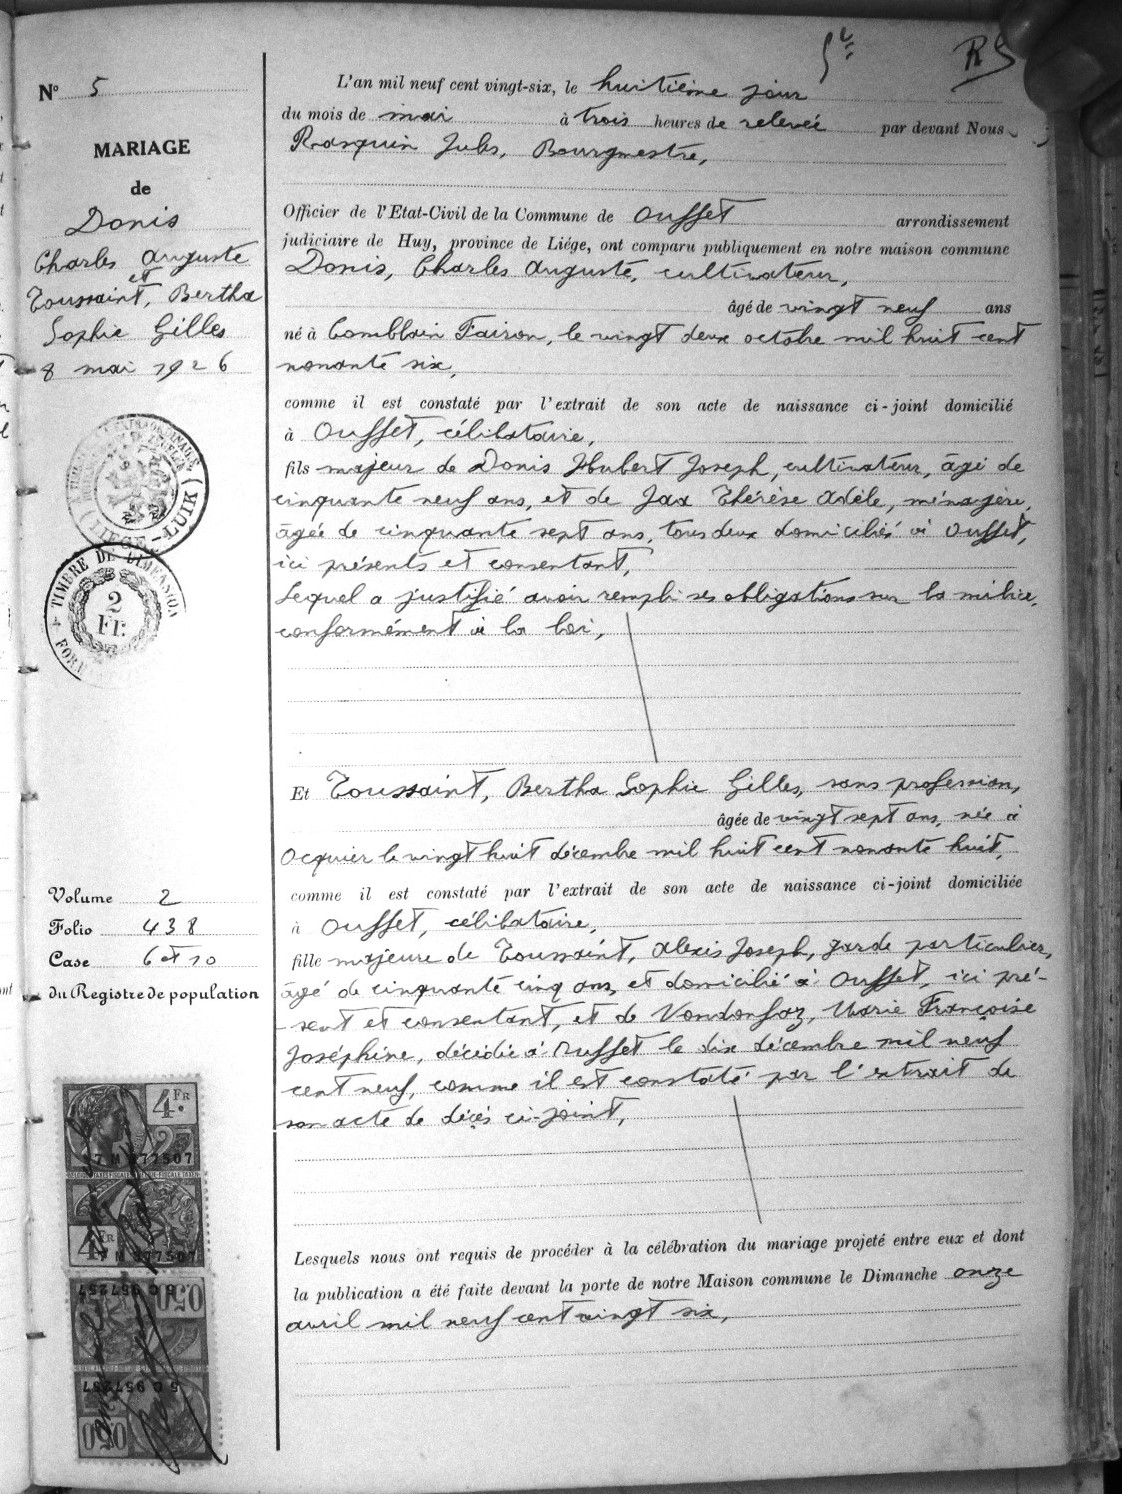 N° 5
MARIAGE
de
Donis
Charles Auguste
et
Toussaint, Bertha
Sophie Gilles
8 mai 1926
LIÈGE - LUIK
TIMBRE DE DIMENSION
2
FR.
Volume 2
Folio 438
Case 6 et 10
du Registre de population
4 FR
7 M 377507
4 FR
7 M 377507
5 C 957257
0,50
5 C 957257
0,50
RS
L'an mil neuf cent vingt-six, le huitième jour
du mois de mai à trois heures de relevée par devant Nous
Rasquin Jules, Bourgmestre,
Officier de l'Etat-Civil de la Commune de Ouffet arrondissement
judiciaire de Huy, province de Liége, ont comparu publiquement en notre maison commune
Donis, Charles Auguste, cultivateur,
âgé de vingt neuf ans
né à Comblain Fairon, le vingt deux octobre mil huit cent
nonante six,
comme il est constaté par l'extrait de son acte de naissance ci-joint domicilié
à Ouffet, célibataire,
fils majeur de Donis Hubert Joseph, cultivateur, âgé de
cinquante neuf ans, et de Jax Thérèse Adèle, ménagère,
âgée de cinquante sept ans, tous deux domiciliés à Ouffet,
ici présents et consentant,
Lequel a justifié avoir rempli ses obligations sur la milice,
conformément à la loi,
Et Toussaint, Bertha Sophie Gilles, sans profession,
âgée de vingt sept ans, née à
Ocquier le vingt huit décembre mil huit cent nonante huit,
comme il est constaté par l'extrait de son acte de naissance ci-joint domiciliée
à Ouffet, célibataire,
fille majeure de Toussaint, Alexis Joseph, garde particulier,
âgé de cinquante cinq ans, et domicilié à Ouffet, ici pré-
-sent et consentant, et de Vandonfaz, Marie Françoise
Joséphine, décédée à Ouffet le dix décembre mil neuf
cent neuf, comme il est constaté par l'extrait de
son acte de décès ci-joint,
Lesquels nous ont requis de procéder à la célébration du mariage projeté entre eux et dont
la publication a été faite devant la porte de notre Maison commune le Dimanche onze
avril mil neuf cent vingt six,